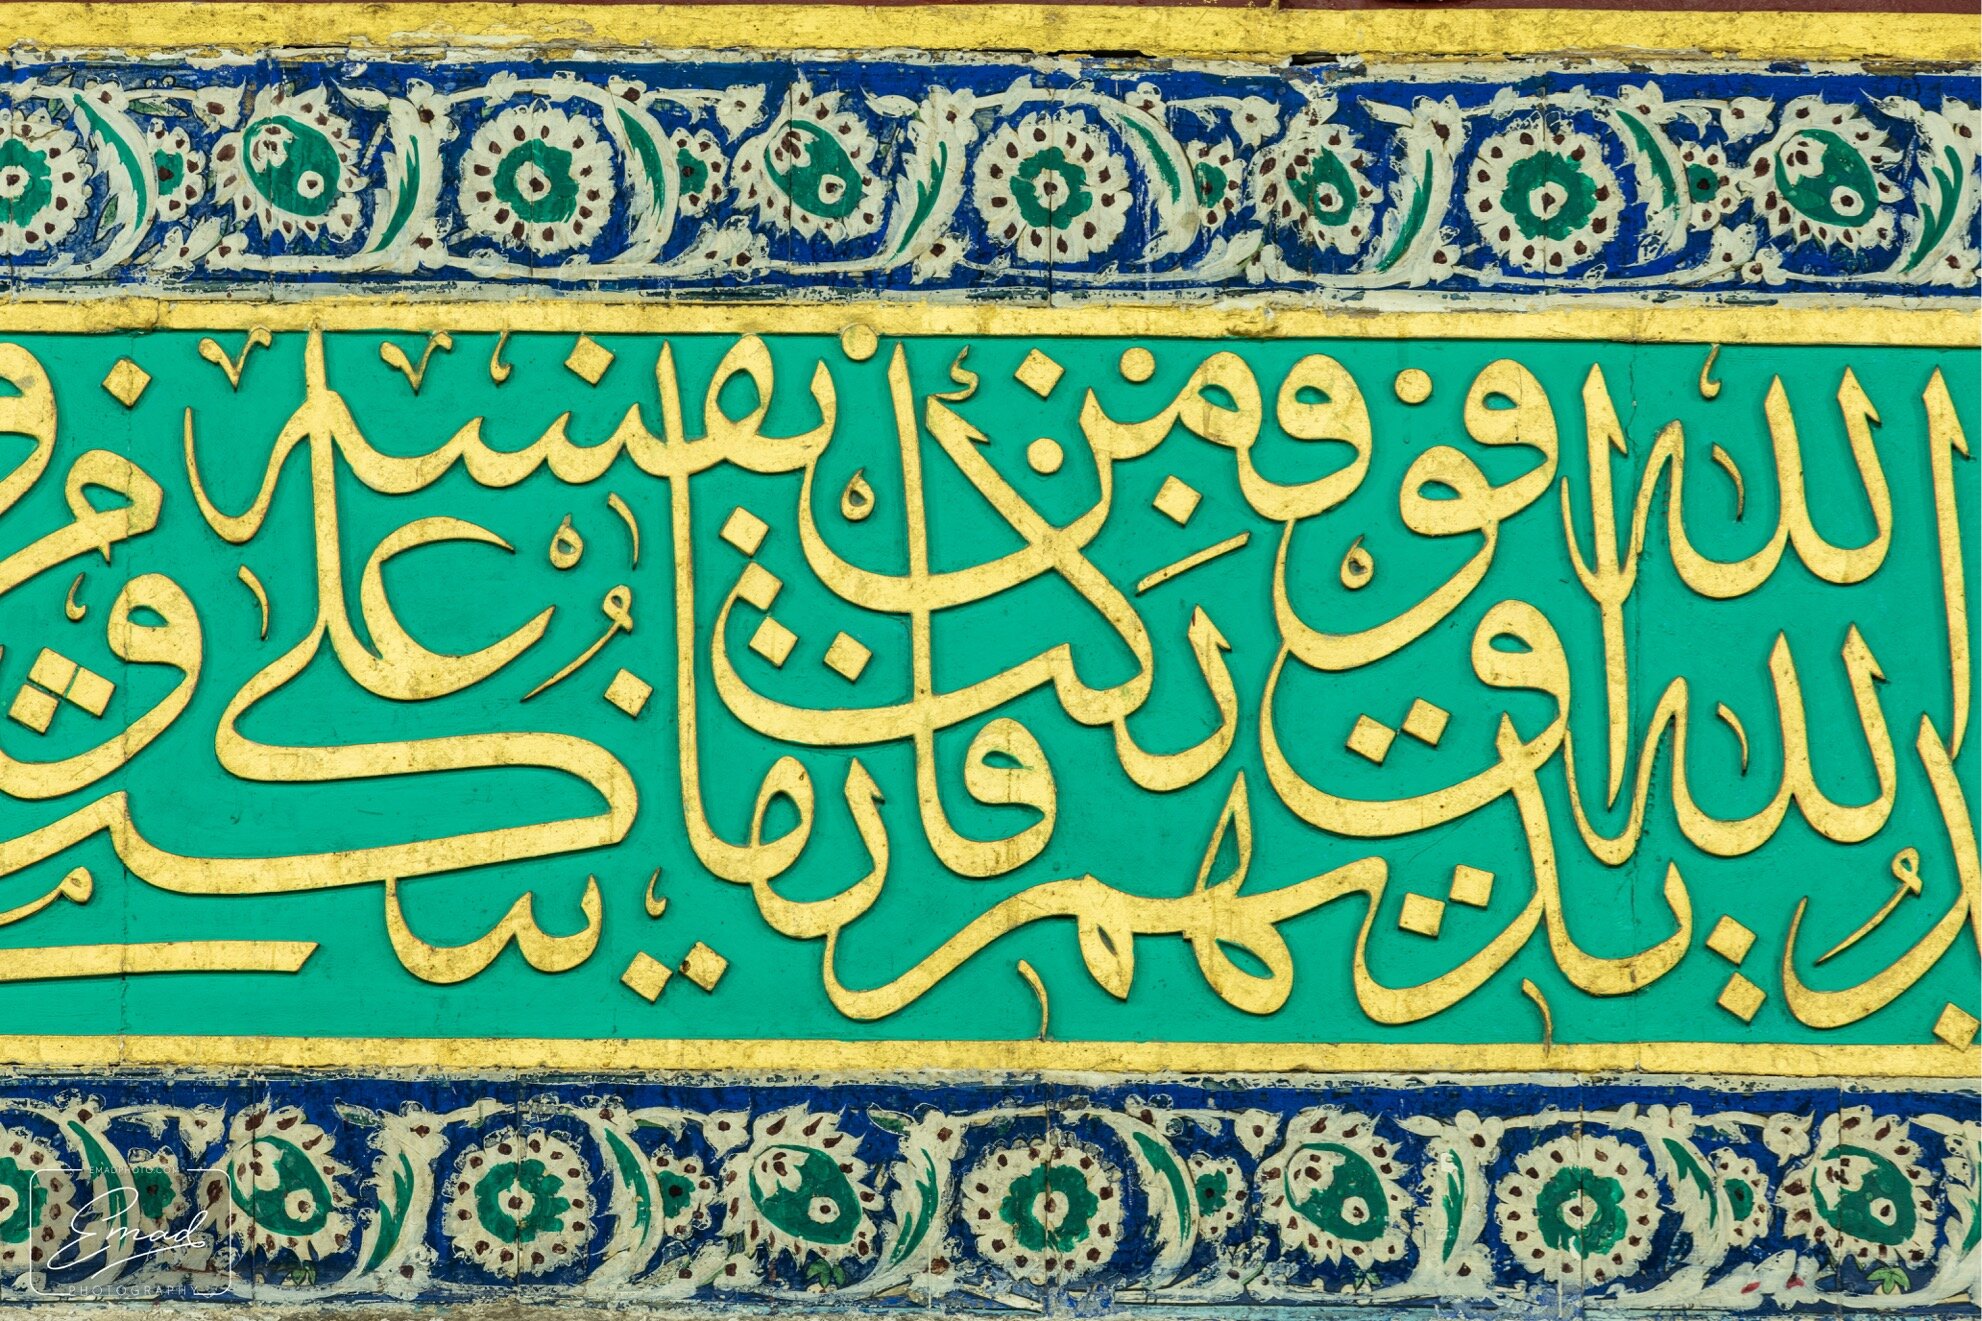 الله يد الله فوق أيديهم فمن نكث فإنما ينكث على نفسه
EMADPHOTO.COM
Emad
PHOTOGRAPHY